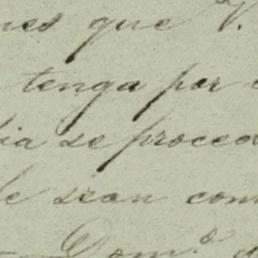 nes que V.
tenga por
dia se proced
le sean con
Dom.º d